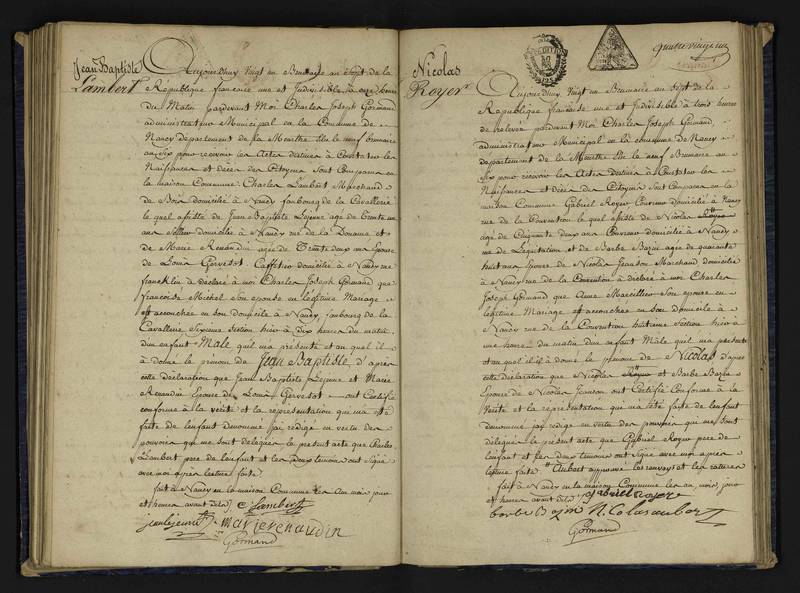 Jean Baptiste
Lambert
Aujourdhuy vingt un Brumaire an Sept de la
Republique francaise une et Indivisible à onze heures
du Matin pardevant Moi Charles Joseph Gormand
administrateur Municipal en la Commune de
Nancy département de la Meurthe Elu le neuf brumaire
an Six pour recevoir les Actes destinés à Constater les
Naissances et décès des Citoyens Sont Comparus en
la maison Commune Charles Lambert Marchand
de Bois domicilié à Nancy faubourg de la Cavallerie
le quel assisté de Jean Baptiste Lejeune agé de Trente un
ans Sellier domicilié à Nancy rue de la Douane et
de Marie Renaudin agée de Trente deux ans Epouse
de Louis Gervesot Caffetier domicilié à Nancy rue
francklin à déclaré à moi Charles Joseph Gormand que
francoise Michel Son epouse en légitime Mariage
est accouchée en son domicile à Nancy, faubourg de la
Cavallerie Sixieme Section hier à dix heures du matin
d'un enfant Male quil m'a présenté et au quel il
à donné le prénom de Jean Baptiste, d'après
cette déclaration que Jean Baptiste Lejeune et Marie
Renaudin Epouse de Louis Gervesot ont Certifié
conforme à la verité et la representation qui m'a été
faite de l'enfant denommé jai rédigé en vertu des
pouvoirs qui me sont délégués le présent acte que Charles
Lambert pere de l'enfant et les deux temoins ont Signé
avec moi après lecture faite.
fait à Nancy en la maison Commune les an mois jour
et heures avant dits C Lambert
jean lejeune Marie renaudin
Gormand
quatre vingt un
Nicolas
Royer
Aujourdhuy, Vingt un Brumaire an Sept de la
Republique francaise une et Indivisible à trois heures
de relevée pardevant Moi Charles Joseph Gormand
administrateur Municipal en la commune de Nancy
departement de la Meurthe Elu le neuf Brumaire an
Six pour recevoir les Actes destinés à Constater les
Naissances et décès des Citoyens Sont Comparus en la
maison Commune Gabriel Royer Couvreur domicilié à Nancy
rue de la Convention le quel assisté de Nicolas Royer
agé de Cinquante deux ans Couvreur domicilié à Nancy
rue de L'équitation et de Barbe Bazin agée de quarante
huit ans Epouse de Nicolas Jeanson Marchand domicilié
à Nancy rue de la Convention à déclaré à moi Charles
Joseph Gormand que Anne Son epouse en
légitime Mariage est accouchée en son domicile à
Nancy rue de la Convention huitieme Section hier à
une heure du matin d'un enfant Mâle quil m'a présenté
et au quel il à donné le prenom de Nicolas d'apres
cette déclaration que Nicolas Royer et Barbe Bazin
Epouse de Nicolas Jeanson ont Certifié Conforme à la
Verité et la representation qui m'a été faite de l'enfant
denommé jai rédigé en vertu des pouvoirs qui me sont
délégués le présent acte que Gabriel Royer pere de
l'enfant et les deux temoins ont signé avec moi apres
lecture faite Aubert approuvé les renvoys et les ratures
fait à Nancy en la maison Commune les an, mois, jour
et heures avant dits gabriell royer
barbe Bazin N. Colas aubert
Gormand